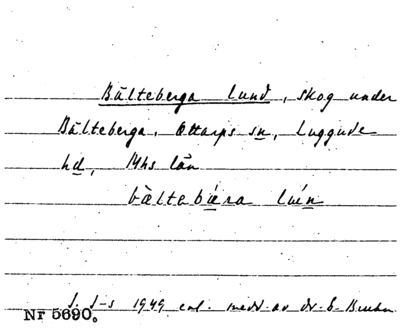 Bälteberga lund, skog under
Bälteberga, Ottarps sn, Luggude
hd, Mhs län
bæ̀ltabæ̀ra lu̇ń
J. S-s 1949 enl. medd av dr. E.
Nr 5690.